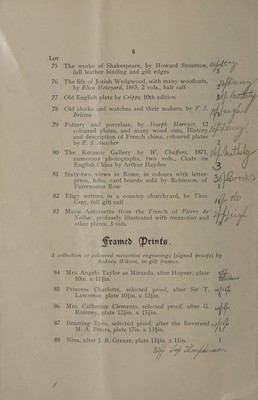 8
Lot
75 The works of Shakespeare, by Howard Staunton,
full leather binding and gilt edges
76 The life of Josiah Wedgwood, with many woodcuts,
by Eliza Meteyard, 1865, 2 vols., half calf
77 Old English plate by Cripps, 10th edition
78 Old clocks and watches and their makers, by F. J.
Britten
79 Pottery and porcelain, by Joseph Marryat, 12
coloured plates, and many wood cuts, History
and description of French china, coloured plates
by E. S. Auscher
80 The Keramic Gallery by W. Chaffers, 1871,
numerous photographs, two vols., Chats on
English China by Arthur Hayden
81 Sixty-two views in Rome, in colours with letter-
press, folio, card boards sold by Robinson, of
Paternoster Row
82 Elegy written in a country churchyard, by Thos.
Gray, full gilt calf
83 Marie Antoinette from the French of Pierre de
Nolhac, profusely illustrated with mezzotint and
other plates, 3 vols.
Framed Prints.
A collection of coloured mezzotint engravings (signed proofs) by
Sydney Wilson, in gilt frames.
84 Mrs. Angelo Taylor as Miranda, after Hopner, plate
10in. x 11½in.
85 Princess Charlotte, selected proof, after Sir T.
Lawrence, plate 10½in. x 12½in.
86 Mrs. Catherine Clements, selected proof, after G.
Romney, plate 12½in. x 15½in.
87 Beaming Eyes, selected proof, after the Reverend
M. A. Peters, plate 17in. x 13½in.
88 Nina, after J. B. Greuze, plate 13½in. x 11in.